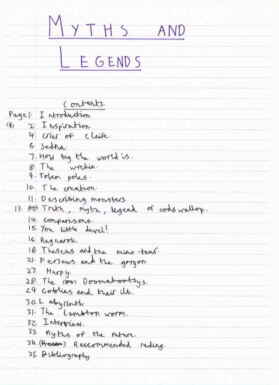 MYTHS AND
LEGENDS
Contents
Page 1: Introduction
2: Inspiration
4. of
6. Sedna.
7. How big the world is.
8. The
9. Totem poles.
10. The creation.
11. Describing monsters
13. Truth, myth, legend of
14. comparisons.
15. You little devil!
16. Ragnarok.
18. Theseus and the mino-taur.
21. Perseus and the gorgon
27. Harpy.
28. The
29. Goblins and their ilk.
30. Labyrinth
31. The Lambton worm.
32. Interview.
33. Myths of the future.
34. Recommended reading.
35. Bibliography